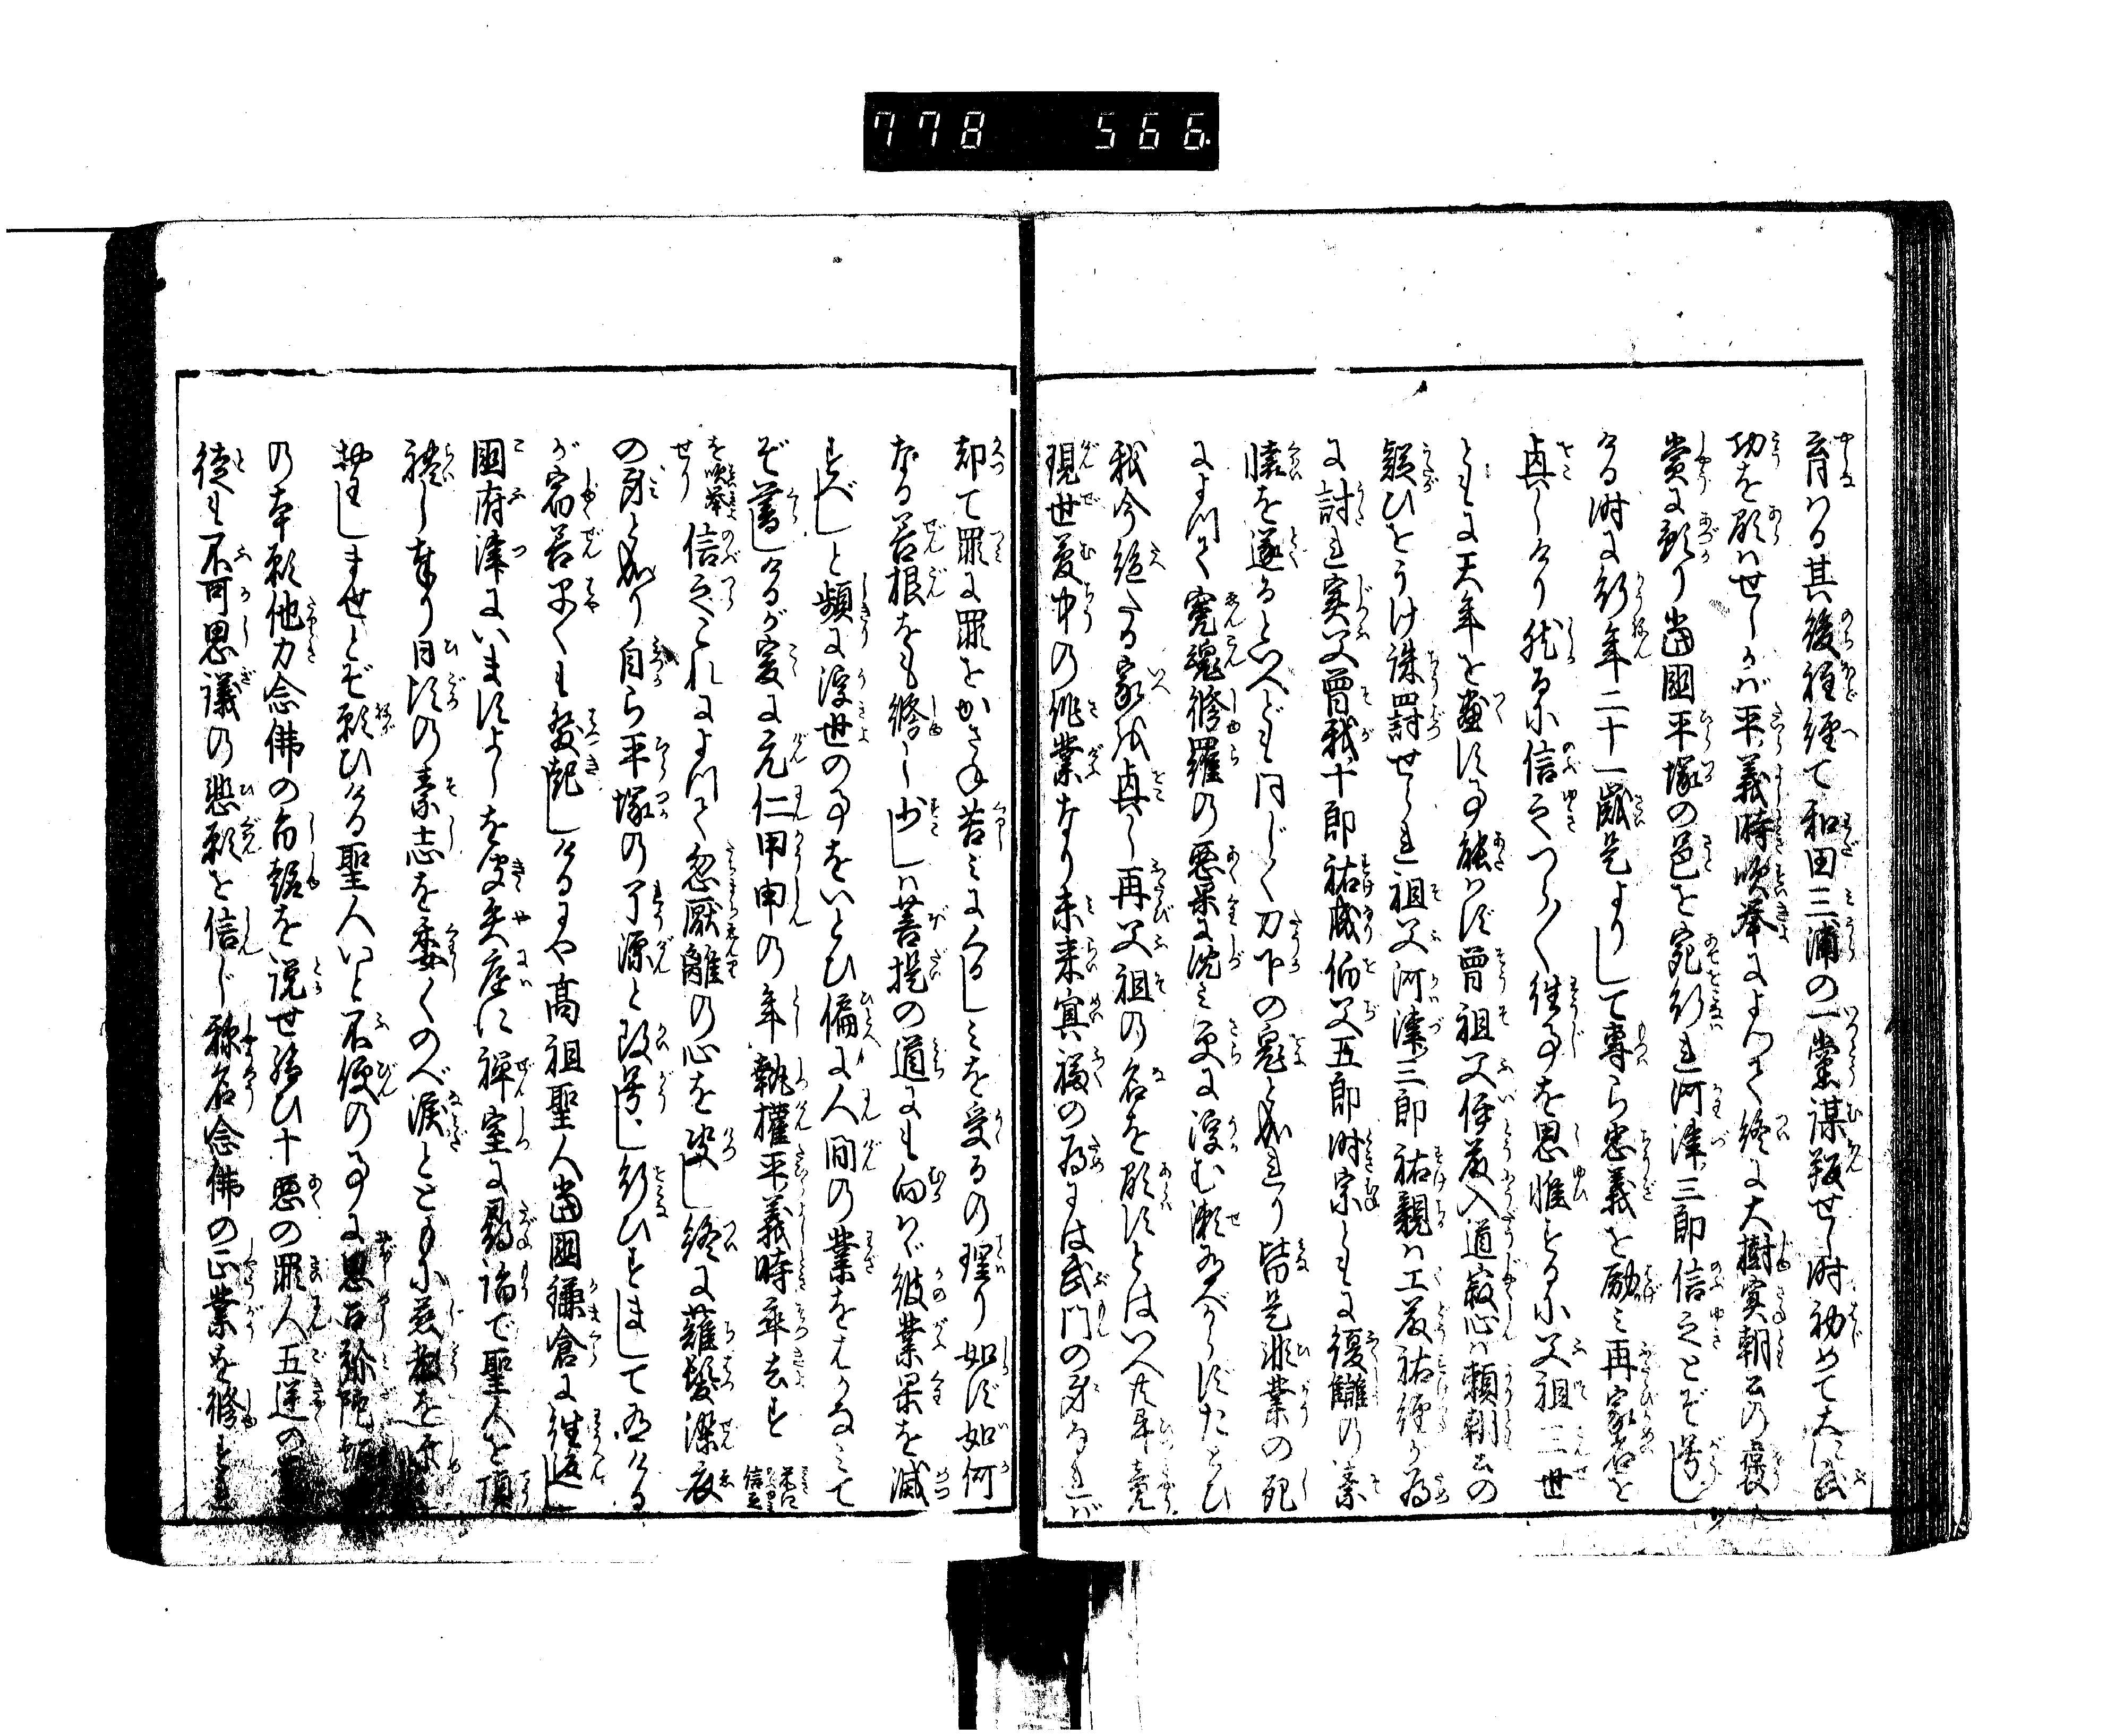 778 566
育ける其後程経て和田三浦の一党謀叛せし時初めて大に武
功を顕はせしかバ平義時吹挙によつて終に大樹実朝公の褒
賞に預り当国平塚の邑を宛行れ河津三郎信之とぞ号し
ける時に行年二十一歳是よりして専ら忠義を励ミ再家名を
興しけり然るに信之つら〳〵往事を思惟するに父祖三世
ともに天年を尽す事能はず曽祖父伊藤入道寂心ハ頼朝公の
疑ひをうけ誅罰せられ祖父河津三郎祐親ハ工藤祐経が為
に討れ実父曽我十郎祐成伯父五郎時宗ともに復讎の素
懐を遂るといへども同じく刀下の鬼と成れり皆是非業の死
によつて冤魂修羅の悪果に沈ミ更に浮む瀬有べからずたとひ
我今絶たる家を興し再父祖の名を顕すとはいへ共畢竟
現世夢中の作業なり未来冥福の為には武門の身なれバ
却て罪に罪をかさね苦ミにくるしミを受るの理り如ず如何
なる善根をも修し少しハ菩提の道にも向ハヾ彼業果を滅
すべしと頻に浮世の事をいとひ偏に人間の業をはかなミて
ぞ暮しけるが爰に元仁甲申の年執権平義時卒去す
を吹挙せり信之これによつて忽厭離の心を決し終に薙髪染衣
の身と成り自ら平塚の了源と改号し行ひすまして居ける
が宿善早くも発起しけるにや高祖聖人当国鎌倉に往返し
国府津にいますよしを聞矢庭に禅室に参詣で聖人を頂
礼し奉り日頃の素志を委くのべ涙とともに慈教を
垂れしませとぞ願ひける聖人いと不便の事に思召弥陀
の本願他力念佛の旨趣を説せ給ひ十悪の罪人五逆の
徒も不可思議の悲願を信じ称名念佛の正業を修すれ